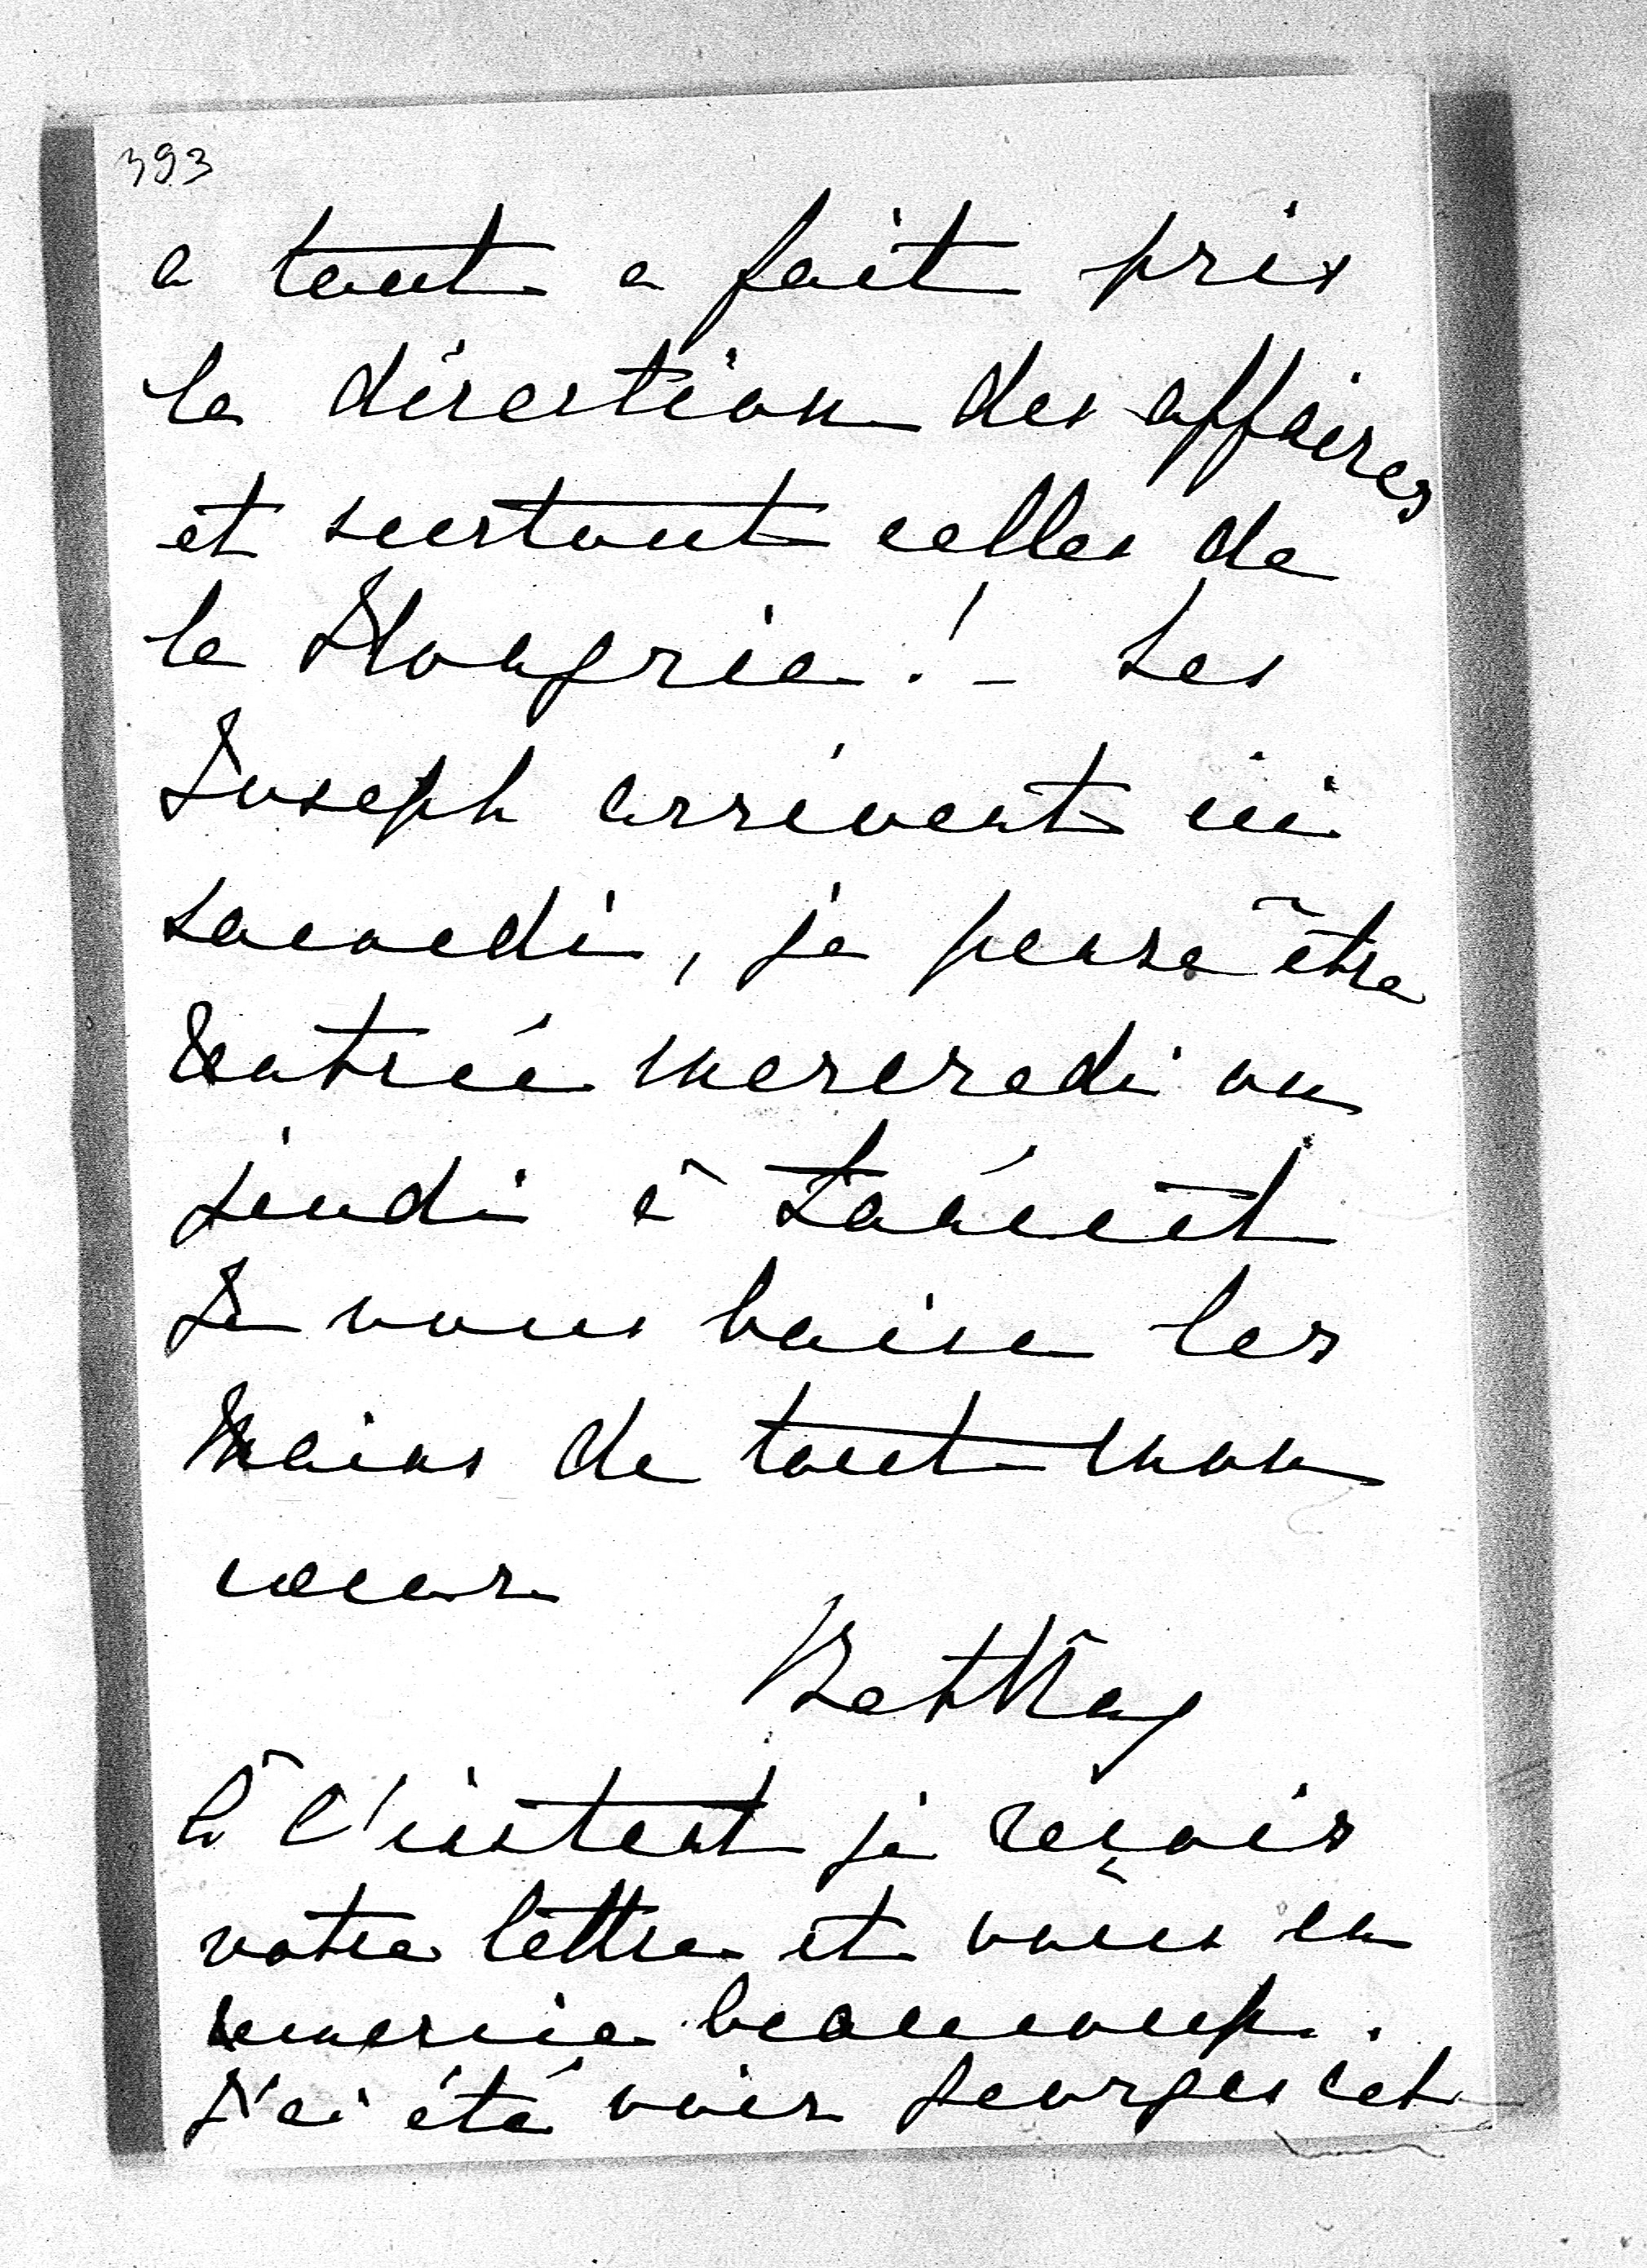 393
a tout a fait pris
la direction des affaires
et surtout celles de
la Hongrie! – Les
Joseph arrivent ici
samedi, je pense être
rentrée mercredi ou
jeudi à Łańcut
Je vous baise les
mains de tout mon
cœur
Betka
à l'instant je reçois
votre lettre et vous en
remercie beaucoup.
J'ai été voir Georges cet